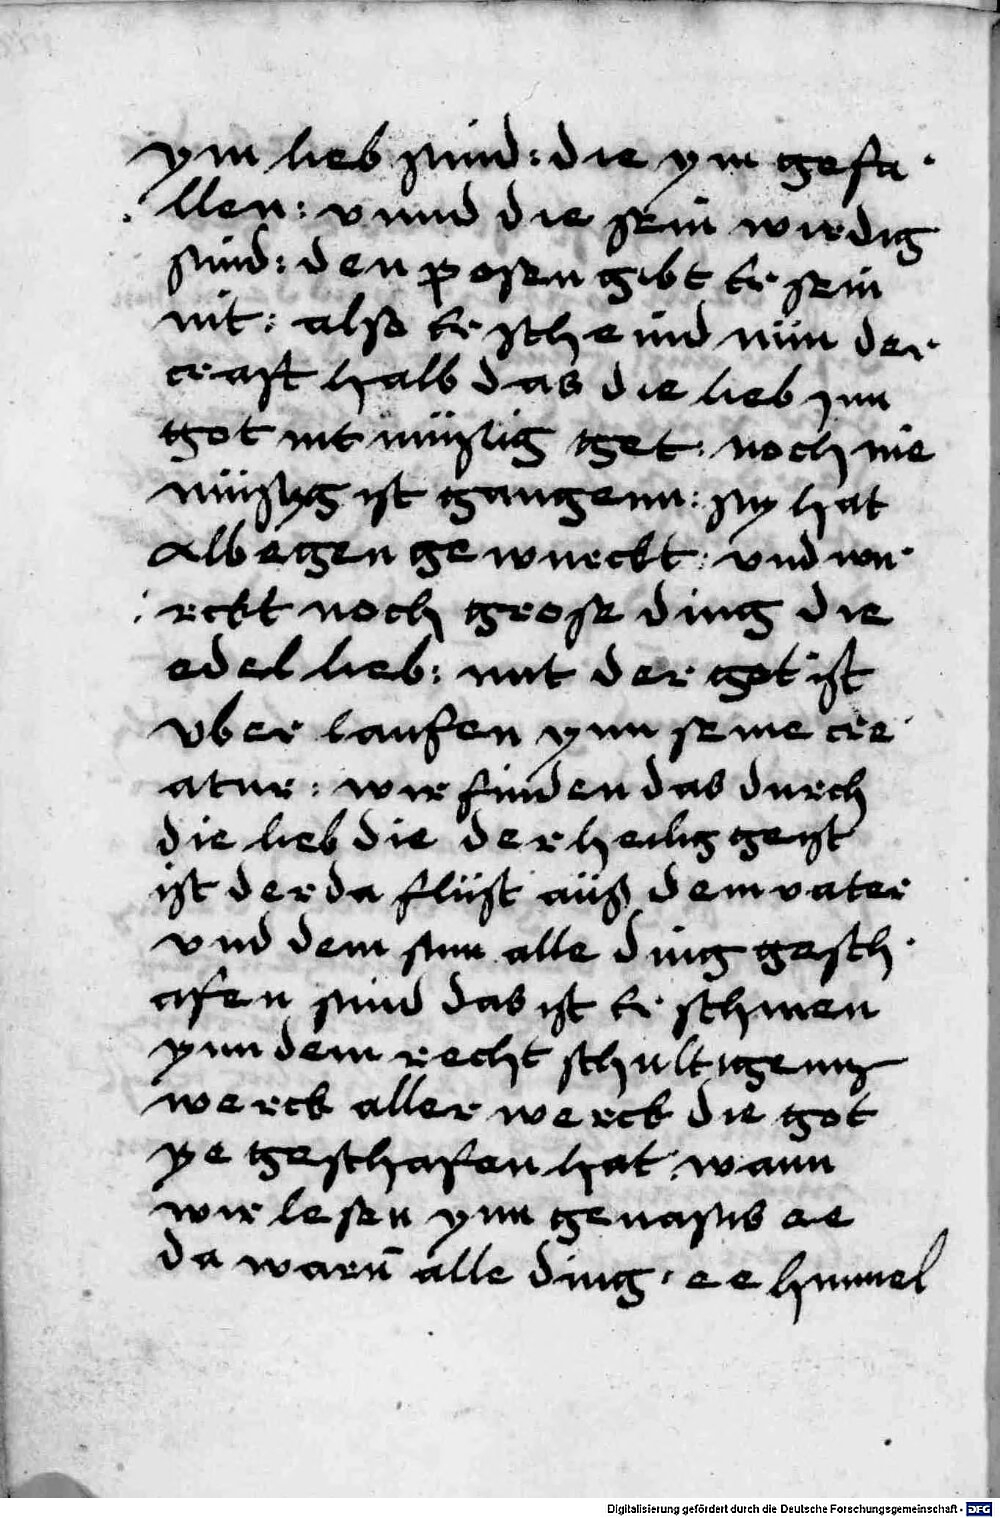 ym lieb sind : die ym gefa ·
· llen : vnnd die sein wirdig
sind : den posen gibt er sein
nit : also erscheind nün der
craft halb das die lieb ynn
got nit müssig get : noch nie
müssyg ist gangenn : sy hat
albegen gewurckt : vnd wu ·
: rckt noch grose ding die
edel lieb : mit der got ist
vber laufen ynn seine cre ·
atur : wir finden das durch
die lieb die der heilig geist
ist der da flüst aüß dem vater
vnd dem sun alle ding gesch ·
afen sind das ist erschinen
ynn dem recht schultigenn
werck aller werck die got
ye geschafen hat . wann
wir lesen ynn genasis ee
da warn̄ alle ding · ee himmel
Digitalisierung gefördert durch die Deutsche Forschungsgemeinschaft - DFG